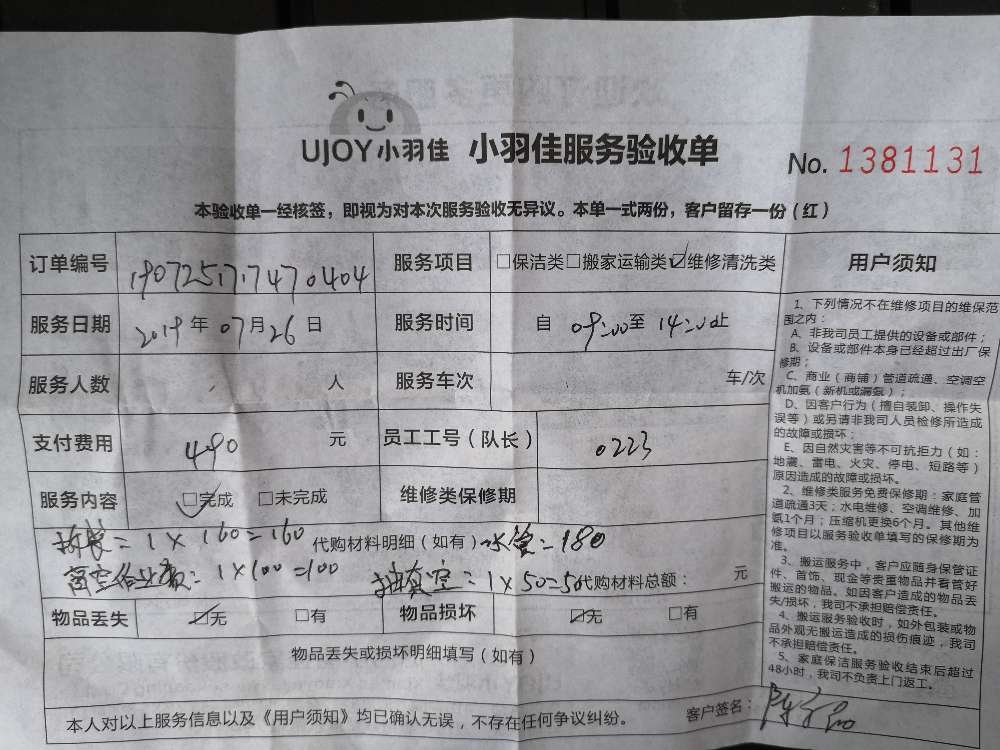 UJOY小羽佳 小羽佳服务验收单 No. 1381131
本验收单一经核签，即视为对本次服务验收无异议。本单一式两份，客户留存一份（红）
订单编号 1907251717470404 服务项目 □保洁类□搬家运输类☑维修清洗类
服务日期 2019年07月26日 服务时间 自 09:00至 14:00止
服务人数 人 服务车次 车/次
支付费用 490 元 员工工号（队长） 0223
服务内容 ☑完成 □未完成 维修类保修期
拆装=1×160=160 代购材料明细（如有）水管=180
高空作业费=1×100=100 抽真空=1×50=50 代购材料总额： 元
物品丢失 ☑无 □有 物品损坏 ☑无 □有
物品丢失或损坏明细填写（如有）
本人对以上服务信息以及《用户须知》均已确认无误，不存在任何争议纠纷。 客户签名：
用户须知
1、下列情况不在维修项目的维保范
围之内：
A、非我司员工提供的设备或部件；
B、设备或部件本身已经超过出厂保
修期；
C、商业（商铺）管道疏通、空调空
机加氨（新机或漏氨）；
D、因客户行为（擅自装卸、操作失
误等）或另请非我司人员检修所造成
的故障或损坏；
E、因自然灾害等不可抗拒力（如：
地震、雷电、火灾、停电、短路等）
原因造成的故障或损坏。
2、维修类服务免费保修期：家庭管
道疏通3天；水电维修、空调维修、加
氨1个月；压缩机更换6个月。其他维
修项目以服务验收单填写的保修期为
准。
3、搬运服务中，客户应随身保管证
件、首饰、现金等贵重物品并看管好
搬运的物品。如因客户造成的物品丢
失/损坏，我司不承担赔偿责任。
4、搬运服务验收时，如外包装或物
品外观无搬运造成的损伤痕迹，我司
不承担赔偿责任。
5、家庭保洁服务验收结束后超过
48小时，我司不负责上门返工。